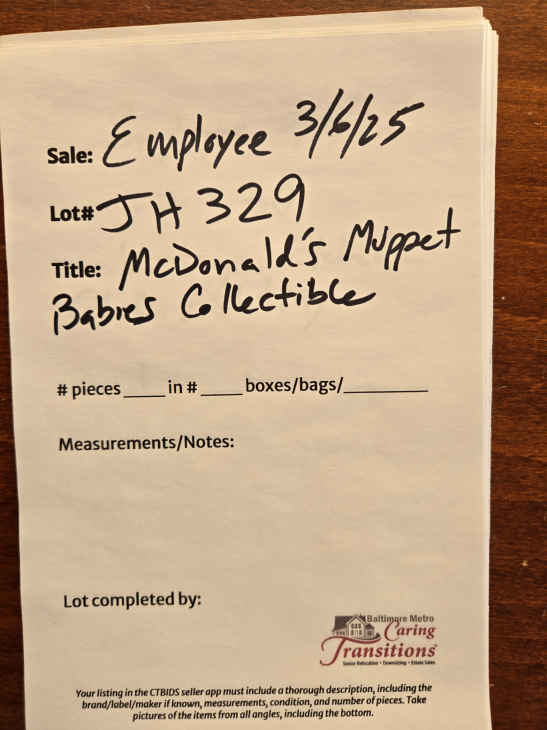 Sale: Employee 3/6/25
Lot# JH 329
Title: McDonald's Muppet
Babies Collectible
# pieces ____ in # ____ boxes/bags/________
Measurements/Notes:
Lot completed by:
Baltimore Metro
Caring
Transitions
Senior Relocation • Downsizing • Estate Sales
Your listing in the CTBIDS seller app must include a thorough description, including the
brand/label/maker if known, measurements, condition, and number of pieces. Take
pictures of the items from all angles, including the bottom.